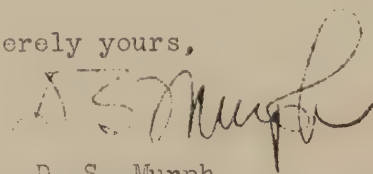 erely yours,
D S Murph
D. S. Murph